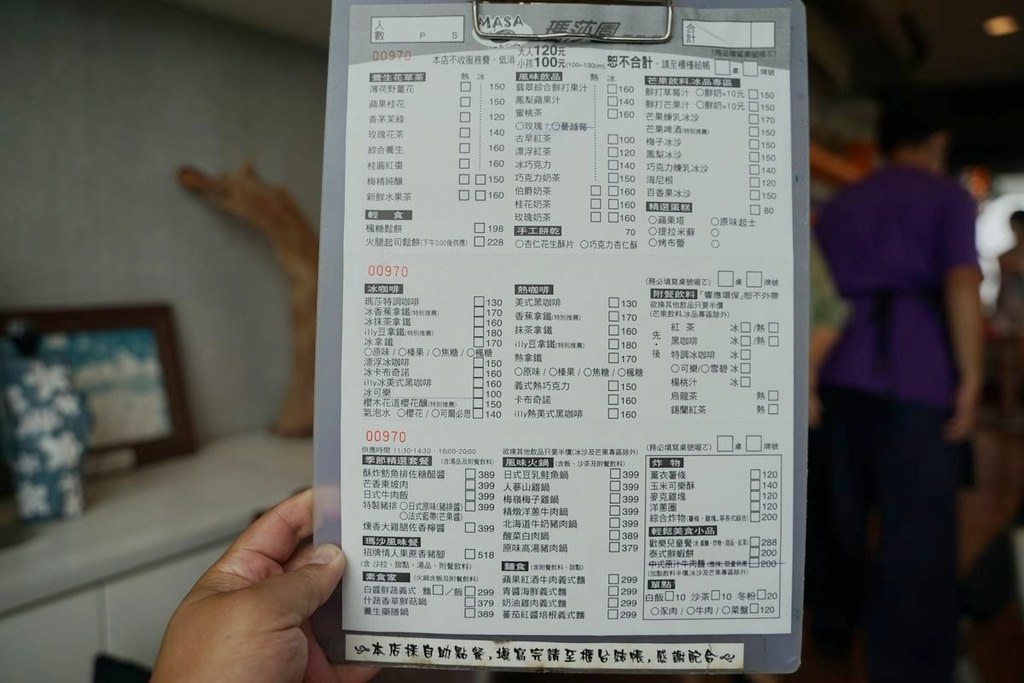 人數 P S
MASA 瑪莎園
合計
00970
本店不收服務費，低消 大人120元 小孩100元(100~130cm) 恕不合計，請至櫃檯結帳
(務必填寫桌號喔乙) 桌 牌號
養生花草茶 熱 冰
薄荷野薑花 150
蘋果桂花 150
香茅茉綠 120
玫瑰花茶 140
綜合養生 160
桂圓紅棗 160
梅精純釀 150
新鮮水果茶 160
輕食
楓糖鬆餅 198
火腿起司鬆餅(下午2:00後供應) 228
風味飲品 熱 冰
翡翠綜合鮮打果汁 160
鳳梨蘋果汁 140
蜜桃茶 160
○玫瑰/○蔓越莓
古早紅茶 100
漂浮紅茶 120
冰巧克力 140
巧克力奶茶 150
伯爵奶茶 160
桂花奶茶 160
玫瑰奶茶 160
手工餅乾 70
○杏仁花生酥片 ○巧克力杏仁酥
芒果飲料冰品專區
鮮打草莓汁 ○鮮奶+10元 150
鮮打芒果汁 ○鮮奶+10元 150
芒果煉乳冰沙 170
芒果啤酒(特別推薦) 150
梅子冰沙 150
鳳梨冰沙 150
巧克力煉乳冰沙 140
海尼根 120
百香果冰沙 150
精選蛋糕 80
○蘋果塔 ○原味起士
○提拉米蘇 ○
○烤布蕾 ○
00970
(務必填寫桌號喔乙) 桌 牌號
冰咖啡
瑪莎特調咖啡 130
冰香蕉拿鐵(特別推薦) 170
冰抹茶拿鐵 160
illy豆拿鐵(特別推薦) 180
冰拿鐵 170
○原味/○榛果/○焦糖/○楓糖
漂浮冰咖啡 150
冰卡布奇諾 160
illy冰美式黑咖啡 160
冰可樂 100
櫻木花道櫻花釀(特別推薦) 150
氣泡水 ○櫻花/○可爾必思 140
熱咖啡
美式黑咖啡 130
香蕉拿鐵(特別推薦) 170
抹茶拿鐵 160
illy豆拿鐵(特別推薦) 180
熱拿鐵 170
○原味/○榛果/○焦糖/○楓糖
義式熱巧克力 150
卡布奇諾 160
illy熱美式黑咖啡 160
附餐飲料 「響應環保」恕不外帶
欲換其他飲品只要半價
(芒果飲料.冰品專區除外)
先・後
紅茶 冰/熱
黑咖啡 冰/熱
特調冰咖啡 冰
○可樂/雪碧 冰
楊桃汁 冰
烏龍茶 熱
錫蘭紅茶 熱
00970
供應時間 11:30-14:30、16:00-20:00 欲換其他飲品只要半價(冰沙及芒果專區除外)
(務必填寫桌號喔乙) 桌 牌號
季節精選套餐 (含湯品及附餐飲料)
酥炸魴魚排佐糖醋醬 389
芒香東坡肉 399
日式牛肉飯 399
特製豬排 ○日式原味(豬排醬) ○法式藍帶(芒果醬) 399
燻香大雞腿佐香檸醬 399
瑪沙風味餐
招牌情人果蔗香豬腳 518
(含 沙拉、甜點、湯品、附餐飲料)
素食家 (火鍋含飯及附餐飲料)
白醬鮮蔬義式 麵/飯 299
什蔬香草鮮菇鍋 379
養生藥膳鍋 389
風味火鍋 (含飯、沙茶及附餐飲料)
日式豆乳鮭魚鍋 399
人蔘山雞鍋 399
梅嶺梅子雞鍋 399
精燉洋蔥牛肉鍋 399
北海道牛奶豬肉鍋 399
酸菜白肉鍋 389
原味高湯豬肉鍋 379
麵食 (含附餐飲料、甜點)
蘋果紅酒牛肉義式麵 299
青醬海鮮義式麵 299
奶油雞肉義式麵 299
蕃茄紅醬培根義式麵 299
炸物
薰衣薯條 120
玉米可樂酥 140
麥克雞塊 120
洋蔥圈 120
綜合炸物 200
輕鬆美食小品
歡樂兒童餐 288
泰式鮮蝦餅 200
中式原汁牛肉麵 200
(加點飲料半價,冰沙及芒果專區除外)
單點
白飯10 沙茶10 冬粉20
○豕肉/○牛肉/○菜盤120
本店採自助點餐，填寫完請至櫃台結帳，感謝配合